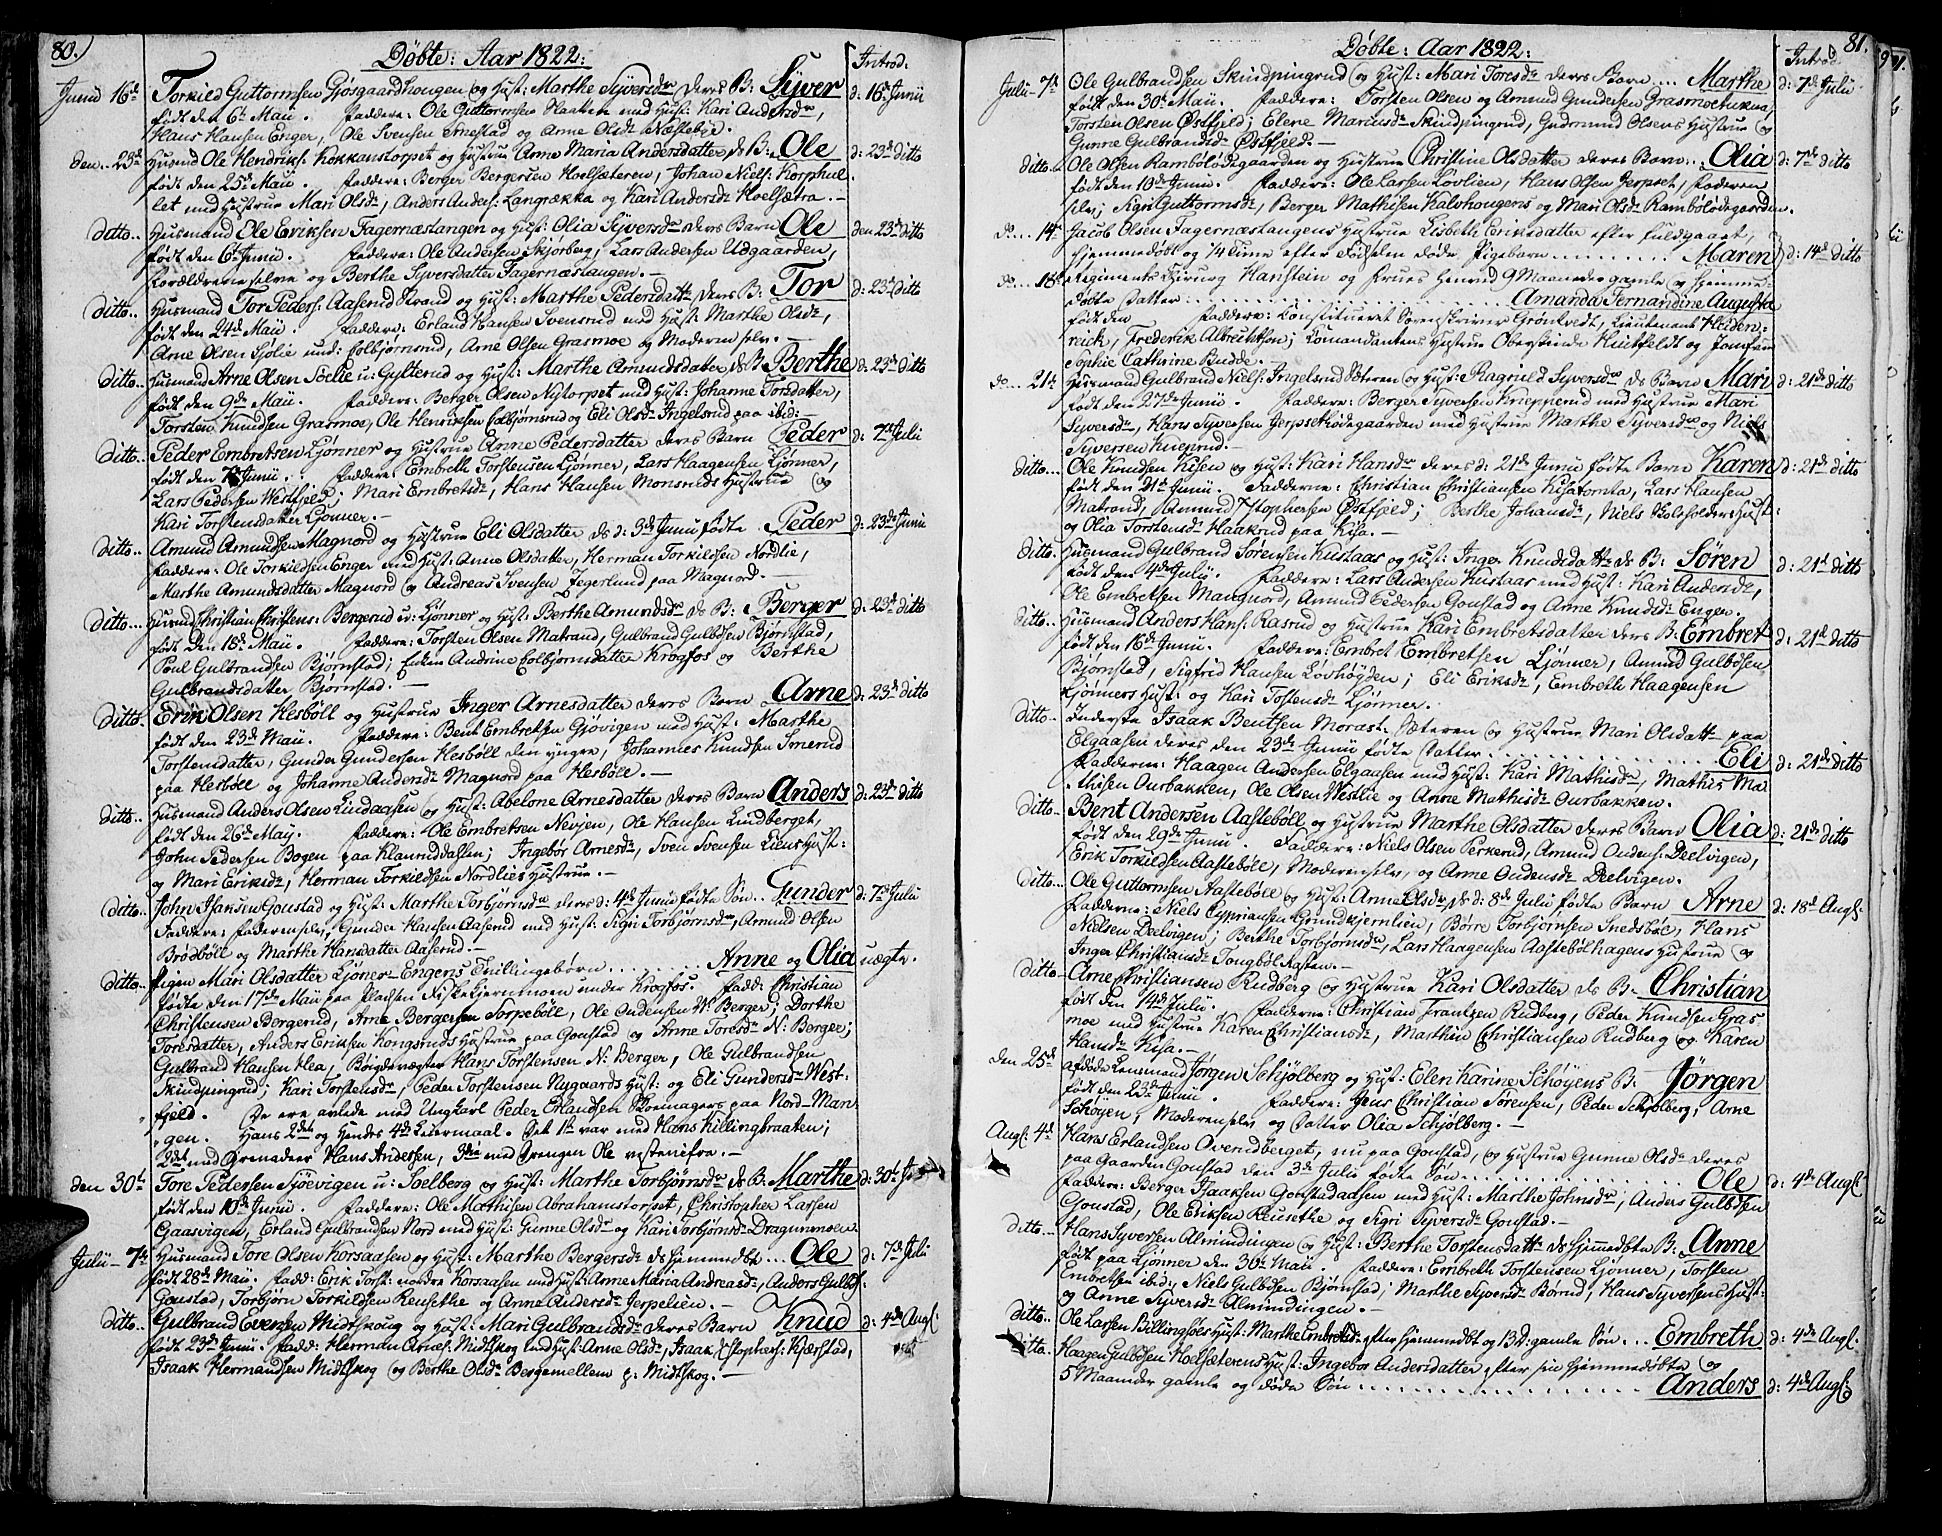 80.)
Döbte: Aar 1822:
Introd:
Junii 16de Torkild Guttormsen Gjösgaardhougen og Hust: Marthe Syversdr deres B: Syver d: 16de Junii
födt den 6te Maii. Faddere: Ole Guttormsen Plaaten med Hust: Kari Andersdr,
Hans Hansen Enger, Ole Svensen Snestad og Arne Olsdr Næsteböe.
den.. 23de Husmd Ole Hendriks: Kokkanstorpet og Hustrue Anne Maria Andersdatter, ds B: Ole d: 23de ditto
födt den 25de Maii. Faddere: Berger Bergersen Hoelsæteren, Johan Niels: Korphul
let med Hustrue Mari Olsdr, Anders Anders: Langrækka og Kari Andersdr Hoelsætra.
ditto.. Husmand Ole Eriksen Fagernæstangen og Hust: Olia Syversdr deres Barn Ole den 23de ditto
födt den 6te Junii. Faddere: Ole Andersen Skjorberg, Lars Andersen Udgaarden,
Forældrerne selve og Berthe Syversdatter Fagernæstangen.
ditto.. Husmand Tor Peders: Aaserud Strand og Hust: Marthe Pedersdatt: deres B: Tor d: 23de ditto
födt den 24de Maii. Faddere: Erland Hansen Svensrud med Hust: Marthe Olsdr,
Arne Olsen Sjölie und: Colbjörnsrud, Arne Olsen Grasmoe og Moderen selv.
ditto.. Husmand Arne Olsen Söelie u: Gylterud og Hust: Marthe Amundsdatter ds B: Berthe d: 23de ditto
födt den 9de Maii. Faddere: Berger Olsen Nytorpet med Hust: Johanne Torsdatter,
Torsten Knudsen Grasmoe, Ole Henriksen Colbjörnsrud og Eli Olsdr Ingelsrud paa ibid:
ditto.. Peder Embretsen Ljönner og Hustrue Anne Pedersdatter deres Barn Peder d: 7de Julii
födt den Junii. Faddere: Embreth Torstensen Ljönner, Lars Haagensen Ljönner,
Lars Pedersen Westfjeld; Mari Embretsdr, Hans Hansen Monsruds Hustrue og
Kari Torstensdatter Ljönner.
ditto.. Amund Amundsen Magnord og Hustrue Eli Olsdatter ds d: 3de Junii födte.. Peder d: 23de Junii
Faddere: Ole Torkildsen Enger med Hust: Anne Olsdatter, Herman Torkildsen Nordlie,
Marthe Amundsdatter Magnord og Andreas Svensen Jegerlund paa Magnord.
ditto... Husmd Christian Christens: Bergerud u: Ljönner og Hust: Berthe Amundsdr ds B: Berger d: 23de ditto
födt den 18de Maii. Faddere: Torsten Olsen Matrand, Gulbrand Gulbdsen Björnstad,
Poul Gulbrandsen Björnstad; Enken Andrine Colbjörnsdatter Krogfos og Berthe
Gulbrandsdatter Björnstad.
ditto.. Erik Olsen Hesböll og Hustrue Inger Arnesdatter deres Barn Arne d: 23de ditto
födt den 23de Maii. Faddere: Bent Embretsen Gjövigen med Hust: Marthe
Torstensdatter, Gunder Gundersen Hesböll den yngre, Johannes Knudsen Smerud
paa Hesböll og Johanne Andersdr Magnord paa Hesböll.
ditto.. Husmand Anders Olsen Lindaasen og Hust: Abelone Arnesdatter deres Barn Anders d: 23de ditto
födt den 26de May. Faddere: Ole Embretsen Nevjen, Ole Hansen Lindberget,
John Pedersen Bogen paa Klanruddassen; Ingebör Arnesdr, Sven Svensen Liens Hust:
og Mari Eriksdr, Herman Torkildsen Nordlies Hustrue.
ditto.. John Isaksen Goustad og Hust: Marthe Torbjörnsdr deres d: 4de Junii födte Sön.. Gunder d: 7de Julii
Faddere: Faderen selv, Gunder Hansen Aaserud med Hust: Sigri Torbjörnsdr, Amund Olsen
Brödböll og Marthe Hansdatter Aaserud.
ditto.. Pigen Mari Olsdatter Ljöner-Engers Tvillingebörn ........ Anne og Olia uægte.
födte den 17de Maii paa Pladsen Fiskekjernmoen under Krogfos. Fadd: Christian
Christensen Bergerud, Arne Bergersen Torpeböl, Ole Audensen N: Berger; Dorthe
Toresdatter, Anders Eriksen Kongsruds Hustrue paa Goustad og Anne Toresdr N: Berger;
Gulbrand Hansen Hea, Böigdevægter Hans Torstensen N: Berger, Ole Gulbrandsen
Skindpingrud; Kari Torstensdr, Peder Torstensen Nygaards Hust: og Eli Gundersdr West-
fjeld. De ere avlede med Ungkarl Peder Erlandsen Skoemagers paa Nord-Man
gen. Hans 2det og Hendes 4de Leiermaal. Det 1te var med Hans Killingbraaten;
2det med Grenadeer Hans Andersen, 3die med Drengen Ole vestenifra.
den 30te Tore Pedersen Sjöevigen u: Soelberg og Hust: Marthe Torbjörnsdr ds B: Marthe d: 30te J
födt den 10de Junii. Faddere: Ole Mathisen Abrahamstorpet, Christopher Larsen
Gaasvigen, Erland Gulbrandsen Nord med Hust: Gunne Olsdr og Kari Torbjörnsdr Dragunmoen.
Julii 7de Husmand Tore Olsen Korsaasen og Hust: Marthe Bergersdr ds hjemmedbt... Ole d: 7de Julii
födt 28de Maii. Fadd: Erik Torst: nordre Korsaasen med Hust: Anne Maria Andreasdr, Anders Gulbds:
Goustad, Torbjörn Torkildsen Reusethe og Anne Andersdr Jerpelien.
ditto.. Gulbrand Evensen Midtskoug og Hust: Mari Gulbrandsdr deres Barn Knud d: 4de Augs:
födt 23de Junii. Fadd: Herman Arnes: Midtskog med Hust: Anne Olsdr, Isaak Xstophers: Kjærstad,
Isaak Hermandsen Midtskog og Berthe Olsdr Bergemellem p: Midtskog.
81.
Döbte: Aar 1822:
Introd:
Julii 7de Ole Gulbrandsen Skindpingrud og Hust: Mari Toresdr deres Barn... Marthe d: 7de Julii
födt den 30te Maii. Faddere: Torsten Olsen og Amund Gundersen Grasmoehukna,
Torsten Olsen Østfjeld; Elene Mariusdr Skindpingrud, Gudmund Olsens Hustrue og
Gunne Gulbrandsdr Østfjeld.
ditto.. Ole Olsen Ramboelödegaarden og Hustrue Christine Olsdatter deres Barn.. Olia d: 7de ditto
födt den 10de Junii. Faddere: Ole Larsen Lövlien, Hans Olsen Jerpset, Faderen
selv; Sigri Guttormsdr, Berger Mathisen Kalvhougens og Mari Olsdr Rambölödegaarden.
do.... 14de Jacob Olsen Fagernæstangens Hustrue Lisbeth Eriksdatter efter fuldgaaet,
hjemmedöbt og 1/4 Time efter Födselen döde Pigebarn .......... Maren d: 14de ditto
do... 18de Regiments Chirurg Hanstein og Frues henved 9 Maaneder gamle og hjemme-
döbte Datter: .......... Amanda Fernandine Augusta
födt den Faddere: Constitueret Sorenskriver Grönkvedt, Lieutenant Heiden-
reich, Frederik Albrechtson; Comandantens Hustrue Oberstinde Huitfeldt og Jomfrue
Sophie Cathrine Budde.
do... 21de Husmand Gulbrand Niels: Ingelsrud Sæteren og Hust: Ragnild Syversdr ds Barn Mari d: 21de ditto
födt den 27de Junii. Faddere: Berger Syversen Knepperud med Hustrue Mari
Syversdr, Hans Syversen Jerpsethödegaarden med Hustrue Marthe Syversdr og Niels
Syversen Kneprud.
ditto... Ole Knudsen Kisen og Hust: Kari Hansdr deres d: 21de Junii födte Barn Karen d: 21de ditto
födt den 21de Junii. Fadderne: Christian Christiansen Kisatomta, Lars Hansen
Matrand, Amund Xstophersen Østfjeld; Berthe Johansdr, Niels Skolholders Hust:
og Olia Torstensdr Haaksrud paa Kisa.
ditto. Husmand Gulbrand Sörensen Kustaas og Hust: Inger Knudsdatter ds B: Sören d: 21de ditto
födt den 4de Julii. Faddere: Lars Andersen Kustaas med Hust: Kari Andersdr,
Ole Embretsen Mangnord, Amund Pedersen Goustad og Arne Knudsdr Engen.
ditto.. Husmand Anders Hans: Rasrud og Hustrue Kari Embretsdatter deres B: Embret d: 21de ditto
födt den 16de Junii. Faddere: Embret Embretsen Ljönner, Amund Gulbdsen
Björnstad, Sigfrid Hansen Lövhöyden; Eli Eriksdr, Embreth Haagensen
Ljönners Hust: og Kari Tostensdr Ljönner.
ditto.. Inderste Isaak Bentsen Morast-Sæteren og Hustrue Mari Olsdatt: paa
Elgaasen deres den 23de Junii födte Datter .......... Eli d: 21de ditto
Fadderne: Haagen Andersen Elgaasen med Hust: Kari Mathisdr, Mathis Ma
thisen Ourbakken, Ole Olsen Westlie og Anne Mathisdr Ourbakken.
ditto.. Bent Andersen Aasteböll og Hustrue Marthe Olsdatter deres Barn Olia d: 21de ditto
födt den 29de Junii. Faddere: Niels Olsen Perkerud, Amund Audens: Deelvigen,
Erik Torkildsen Aasteböll, Moderen selv, og Arne Audensdr Deelvigen.
ditto.. Ole Guttormsen Aasteböll og Hust: Anne Olsdr ds d: 8de Julii födte Barn Arne d: 18de Augs:
Fadderne: Niels Cyprianssen Grindkjernlien, Börre Torbjörnsen Snedsböl, Hans
Nielsen Deelvigen; Berthe Torbjörnsdr, Lars Haagensen Aasteböllhagens Hustrue og
Inger Christiansdr Tongböl-Aasen.
ditto.. Arne Christiansen Rudberg og Hustrue Kari Olsdatter ds B: Christian
födt den 14de Julii. Fadderne: Christian Frantzen Rudberg, Peder Knudsen Gras
moe med Hustrue Karen Christiansdr, Marthin Christiansen Rudberg og Karen
Hansdr Kisa.
den 25de afdöde Lensmand Jörgen Schjölberg og Hust: Elen Karine Schöyens B: Jörgen
födt den 23de Junii. Faddere: Jens Christian Sörensen, Peder Schjölberg; Arne
Schöyen, Moderen selv og Datter Olia Schjölberg.
Augs: 4de Hans Erlandsen Overudberget, nu paa Goustad, og Hustrue Gunne Olsdr deres
paa Gaarden Goustad den 3de Julii födte Sön .......... Ole d: 4de Augs:
Faddere: Berger Isaaksen Goustadaasen med Hust: Marthe Johnsdr, Anders Gulbdsen
Goustad, Ole Eriksen Reusethe og Sigri Syversdr Goustad.
ditto.. Hans Syversen Almindingen og Hust: Berthe Torstensdatt: ds hjemmedbte B: Anne
födt paa Ljönner den 30te Maii. Faddere: Embreth Torstensen Ljönner, Torsten
Embretsen ibid:, Niels Gulbdsen Björnstad; Marthe Syversdr Börud, Hans Syversens Hust:
og Anne Syversdr Almindingen.
ditto.. Ole Larsen Billingsöes Hust: Marthe Embretsdr efter hjemmedbt og 13 D: gamle Sön.. Embreth d: 4de Augs:
ditto.. Haagen Gulbdsen Hoelsæterens Hust: Ingebor Andersdatter efter sin hjemmedöbte og
5 Maaneder gamle og döde Sön .......... Anders d: 4de Augs: